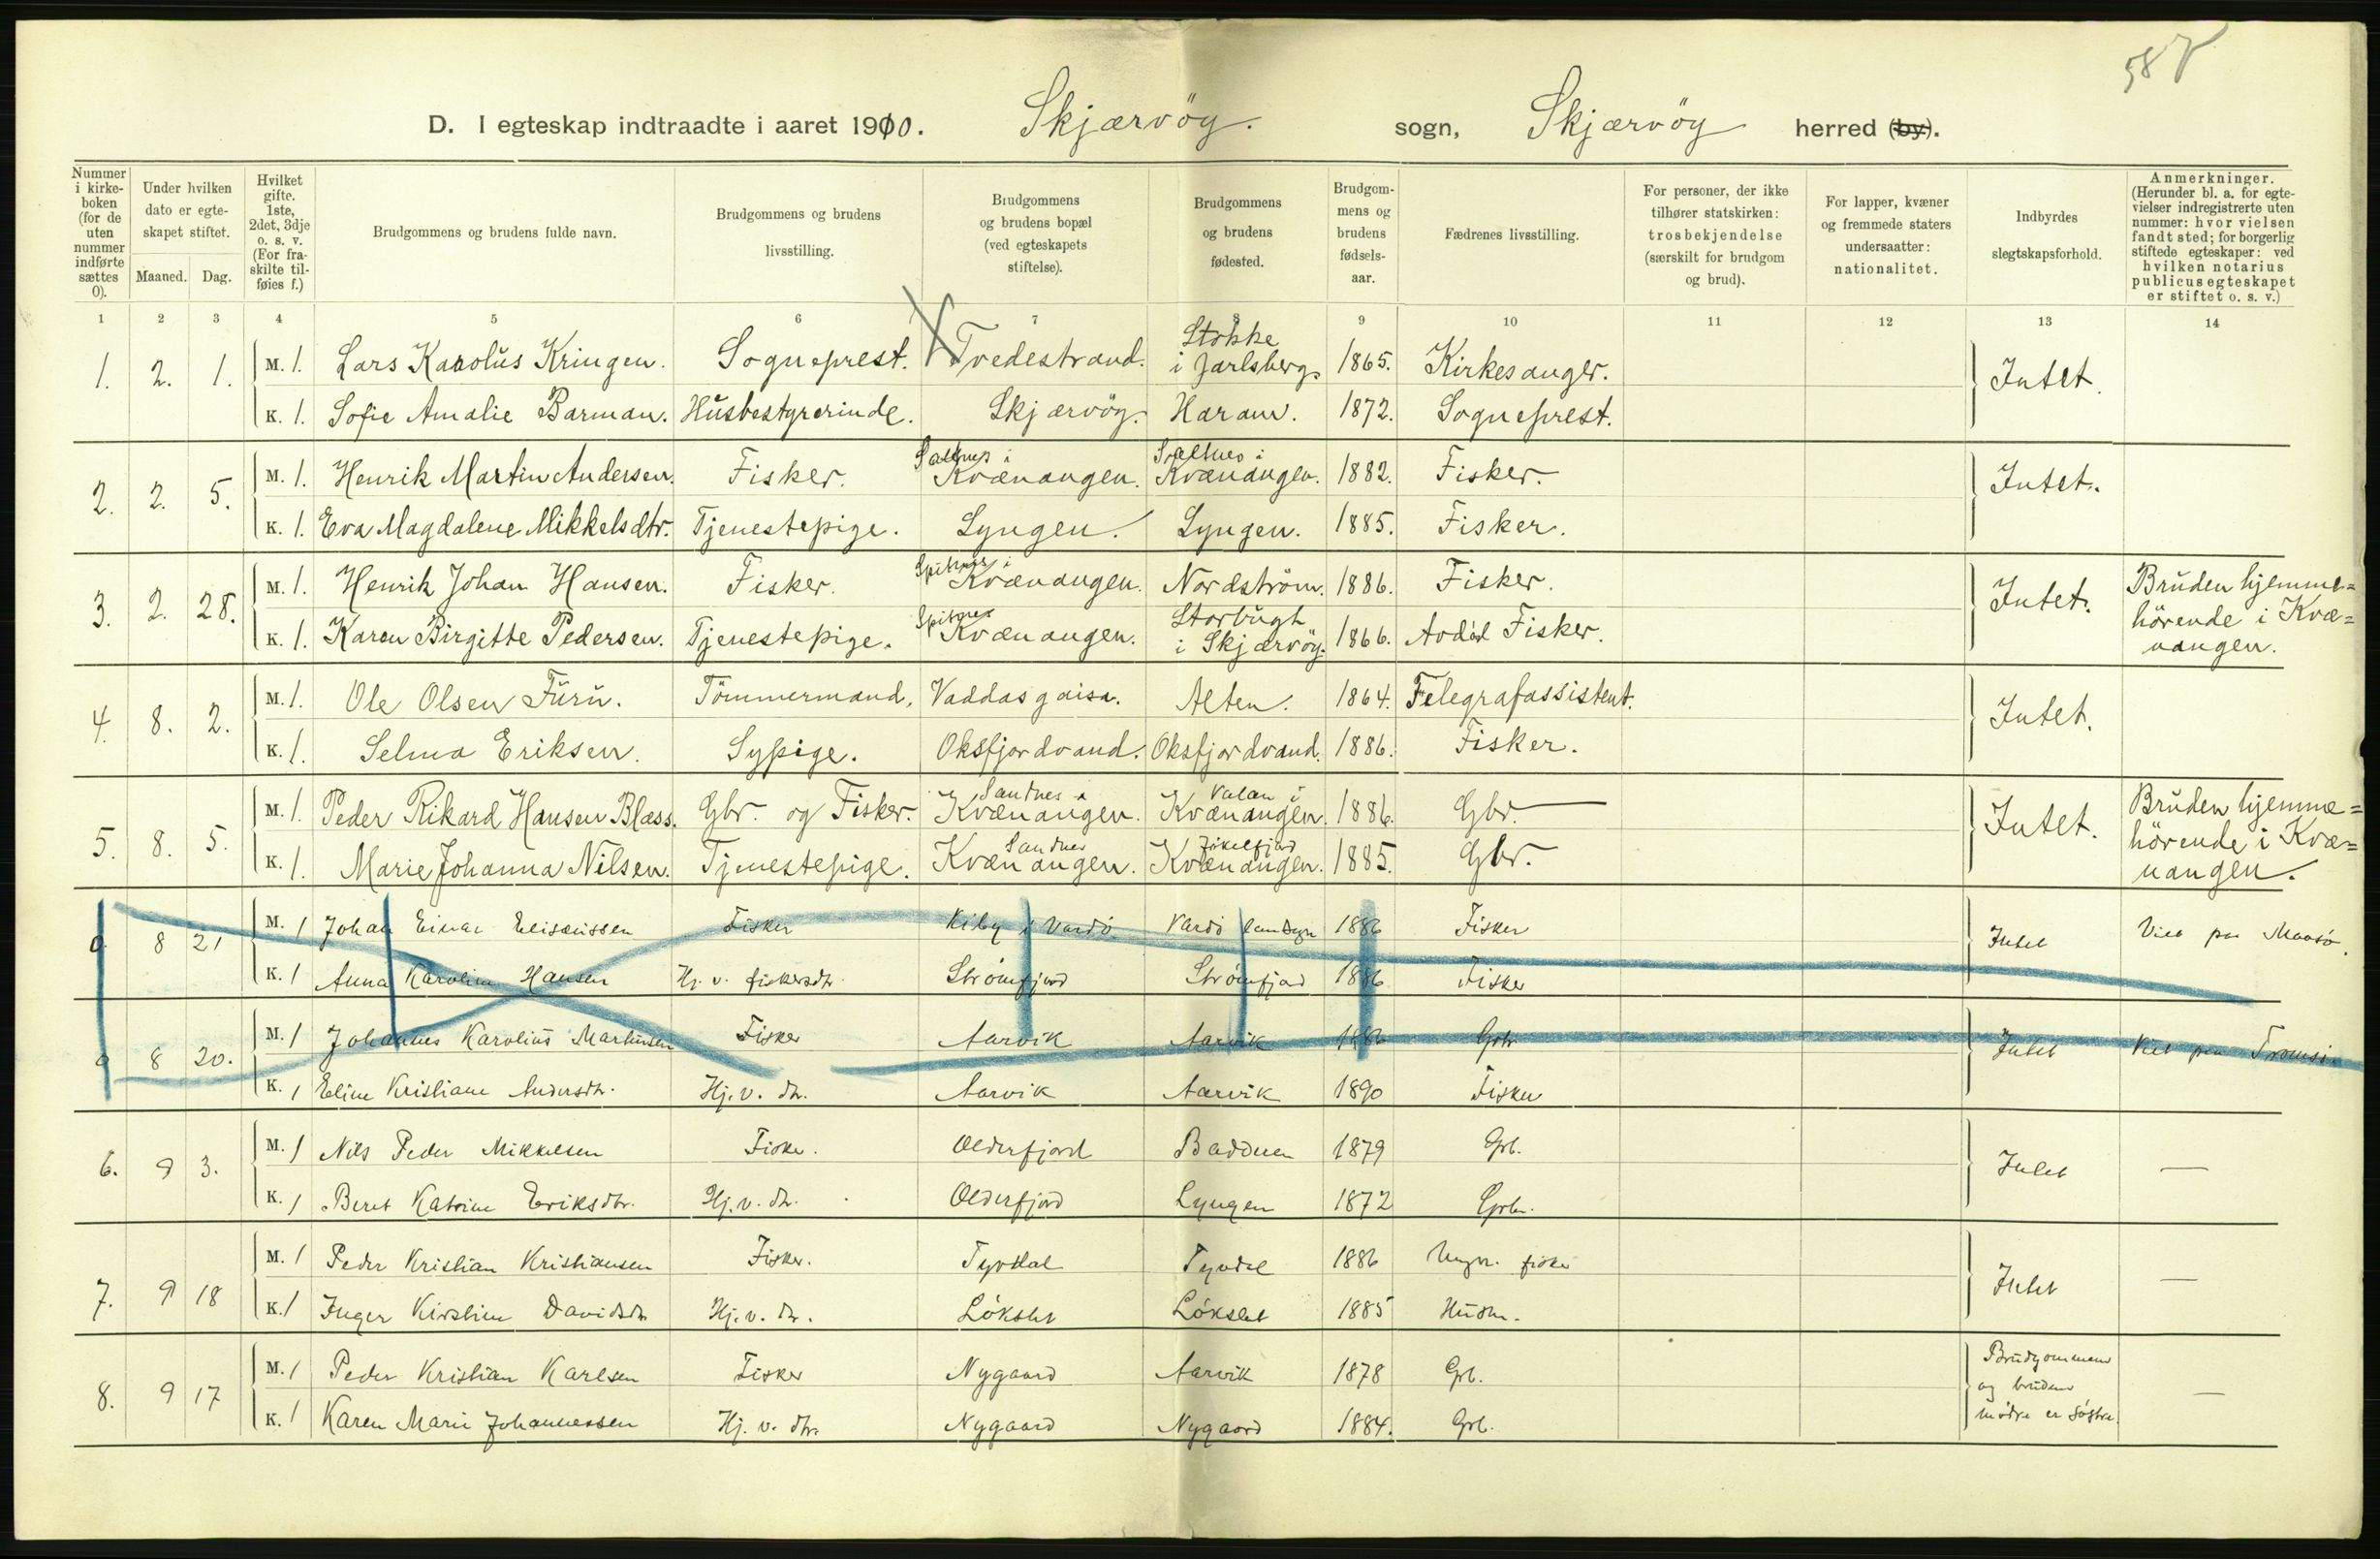 587
D. I egteskap indtraadte i aaret 1910. Skjærvöy. sogn, Skjærvöy herred (by).
Nummer i kirkeboken (for de uten nummer indførte sættes 0).
Under hvilken dato er egteskapet stiftet.
Maaned. Dag.
Hvilket gifte. 1ste, 2det, 3dje o. s. v. (For fraskilte tilføies f.)
Brudgommens og brudens fulde navn.
Brudgommens og brudens livsstilling.
Brudgommens og brudens bopæl (ved egteskapets stiftelse).
Brudgommens og brudens fødested.
Brudgommens og brudens fødselsaar.
Fædrenes livsstilling.
For personer, der ikke tilhører statskirken: trosbekjendelse (særskilt for brudgom og brud).
For lapper, kvæner og fremmede staters undersaatter: nationalitet.
Indbyrdes slegtskapsforhold.
Anmerkninger. (Herunder bl. a. for egtevielser indregistrerte uten nummer: hvor vielsen fandt sted; for borgerlig stiftede egteskaper: ved hvilken notarius publicus egteskapet er stiftet o. s. v.)
1 2 3 4 5 6 7 8 9 10 11 12 13 14
1. 2. 1. M. 1. Lars Karolus Kringen. Sogneprest. Tvedestrand. Stokke i Jarlsberg. 1865. Kirkesanger. Intet.
K. 1. Sofie Amalie Barman. Husbestyrerinde. Skjærvöy. Haram. 1872. Sogneprest.
2. 2. 5. M. 1. Henrik Martin Andersen. Fisker. Saltnes i Kvænangen. Saltnes i Kvænangen. 1882. Fisker. Intet.
K. 1. Eva Magdalene Mikkelsdtr. Tjenestepige. Lyngen. Lyngen. 1885. Fisker.
3. 2. 28. M. 1. Henrik Johan Hansen. Fisker. Spitnes i Kvænangen. Nordström. 1886. Fisker. Intet. Bruden hjemme=hörende i Kvæ=nangen.
K. 1. Karen Birgitte Pedersen. Tjenestepige. Spitnes Kvænangen. Storbugt i Skjærvöy. 1866. Avdöd Fisker.
4. 8. 2. M. 1. Ole Olsen Furu. Tömmermand. Vaddasgaisa. Alten. 1864. Telegrafassistent. Intet.
K. 1. Selma Eriksen. Sypige. Oksfjordvand. Oksfjordvand. 1886. Fisker.
5. 8. 5. M. 1. Peder Rikard Hansen Blæss. Gbr. og Fisker. Sandnes i Kvænangen. Valan i Kvænangen. 1886. Gbr. Intet. Bruden hjemme=hörende i Kvæ=nangen.
K. 1. Marie Johanna Nilsen. Tjenestepige. Sandnes Kvænangen. Jökelfjord Kvænangen. 1885. Gbr.
0 8 21 M. 1 Johan Einar Elisæussen Fisker Kiby i Vardö Vardö landsgn 1886 Fisker Intet Viet paa Maasö.
K. 1 Anna Karoline Hansen Hj. v. fiskersdtr. Strömfjord Strömfjord 1886 Fisker
0 8 20. M. 1 Johannes Karolius Martinsen Fisker Aarvik Aarvik 1886 Grb. Intet Viet paa Tromsö
K. 1 Eline Kristiane Andersdtr. Hj. v. dtr. Aarvik Aarvik 1890 Fisker
6. 9 3. M. 1 Nils Peder Mikkelsen Fisker. Olderfjord Badderen 1879 Grb. Intet —
K. 1 Beret Katrine Eriksdtr. Hj. v. dtr. Olderfjord Lyngen 1872 Grbr.
7. 9 18 M. 1 Peder Kristian Kristiansen Fisker. Tyvdal Tyvdal 1886 fisker Intet —
K. 1 Inger Kirstine Davidsdtr Hj. v. dtr. Lökslet Lökslet 1885 Husm.
8. 9 17 M. 1 Peder Kristian Karlsen Fisker Nygaard Aarvik 1878 Grb. Brudgommens og brudens mödre er söstre. —
K. 1 Karen Marie Johannessen Hj. v. dtr. Nygaard Nygaard 1884. Grb.